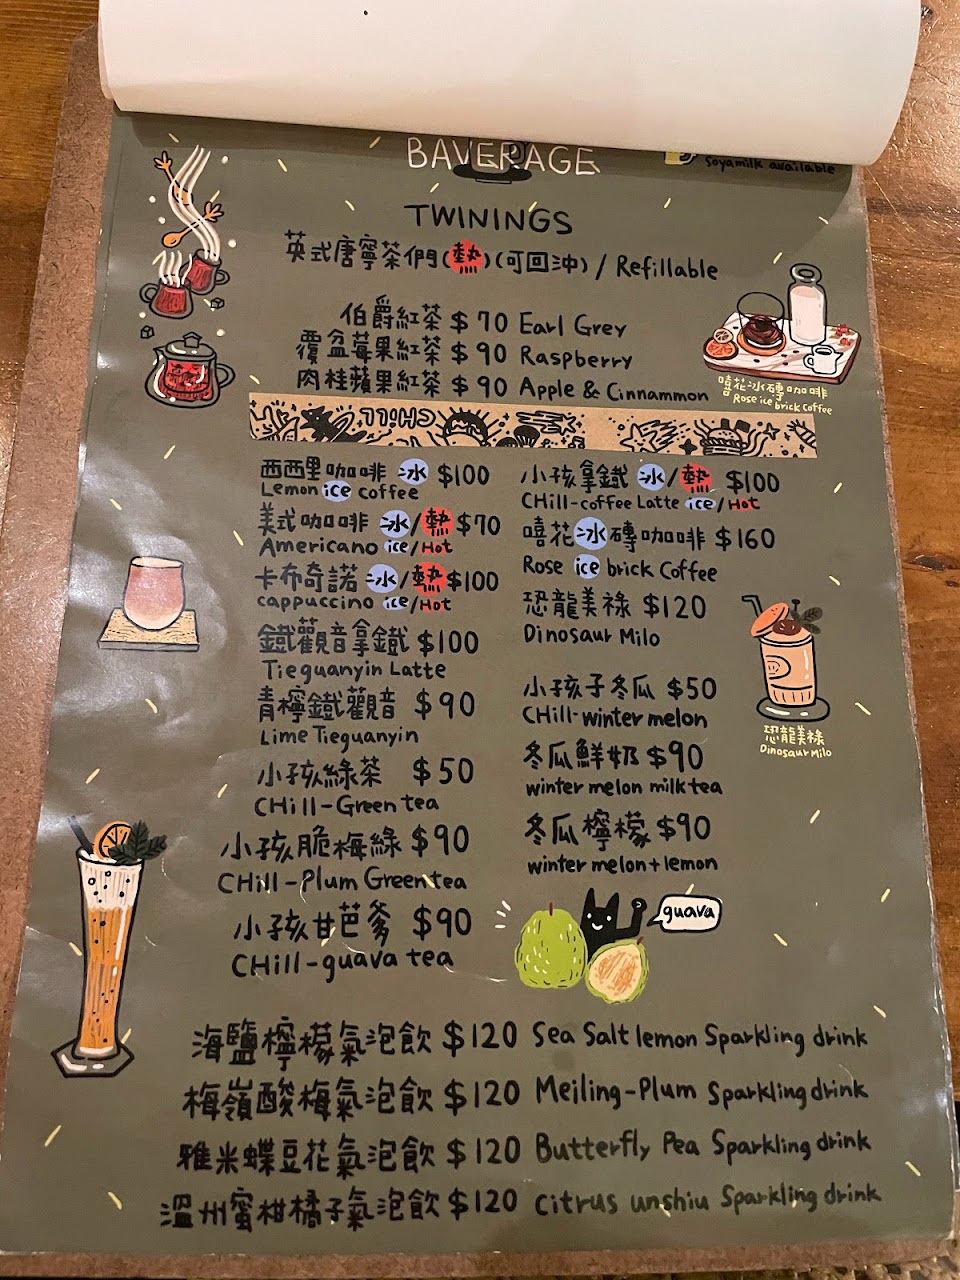 BAVERAGE
Soyamilk available
TWININGS
英式唐寧茶們(熱)(可回沖) / Refillable
伯爵紅茶 $70 Earl Grey
覆盆莓果紅茶 $90 Raspberry
肉桂蘋果紅茶 $90 Apple & Cinnammon
嘻花冰磚咖啡
Rose ice brick Coffee
CHILL
西西里咖啡 冰 $100
Lemon ice coffee
美式咖啡 冰/熱 $70
Americano ice/Hot
卡布奇諾 冰/熱 $100
cappuccino ice/Hot
鐵觀音拿鐵 $100
Tieguanyin Latte
青檸鐵觀音 $90
Lime Tieguanyin
小孩綠茶 $50
CHill-Green tea
小孩脆梅綠 $90
CHill-Plum Green tea
小孩甘芭爹 $90
CHill-guava tea
小孩拿鐵 冰/熱 $100
CHill-coffee Latte ice/Hot
嘻花冰磚咖啡 $160
Rose ice brick Coffee
恐龍美祿 $120
Dinosaur Milo
小孩子冬瓜 $50
CHill-winter melon
冬瓜鮮奶 $90
winter melon milk tea
冬瓜檸檬 $90
winter melon+lemon
恐龍美祿
Dinosaur Milo
guava
海鹽檸檬氣泡飲 $120 Sea Salt lemon Sparkling drink
梅嶺酸梅氣泡飲 $120 Meiling-Plum Sparkling drink
雅米蝶豆花氣泡飲 $120 Butterfly Pea Sparkling drink
溫州蜜柑橘子氣泡飲 $120 Citrus unshiu Sparkling drink